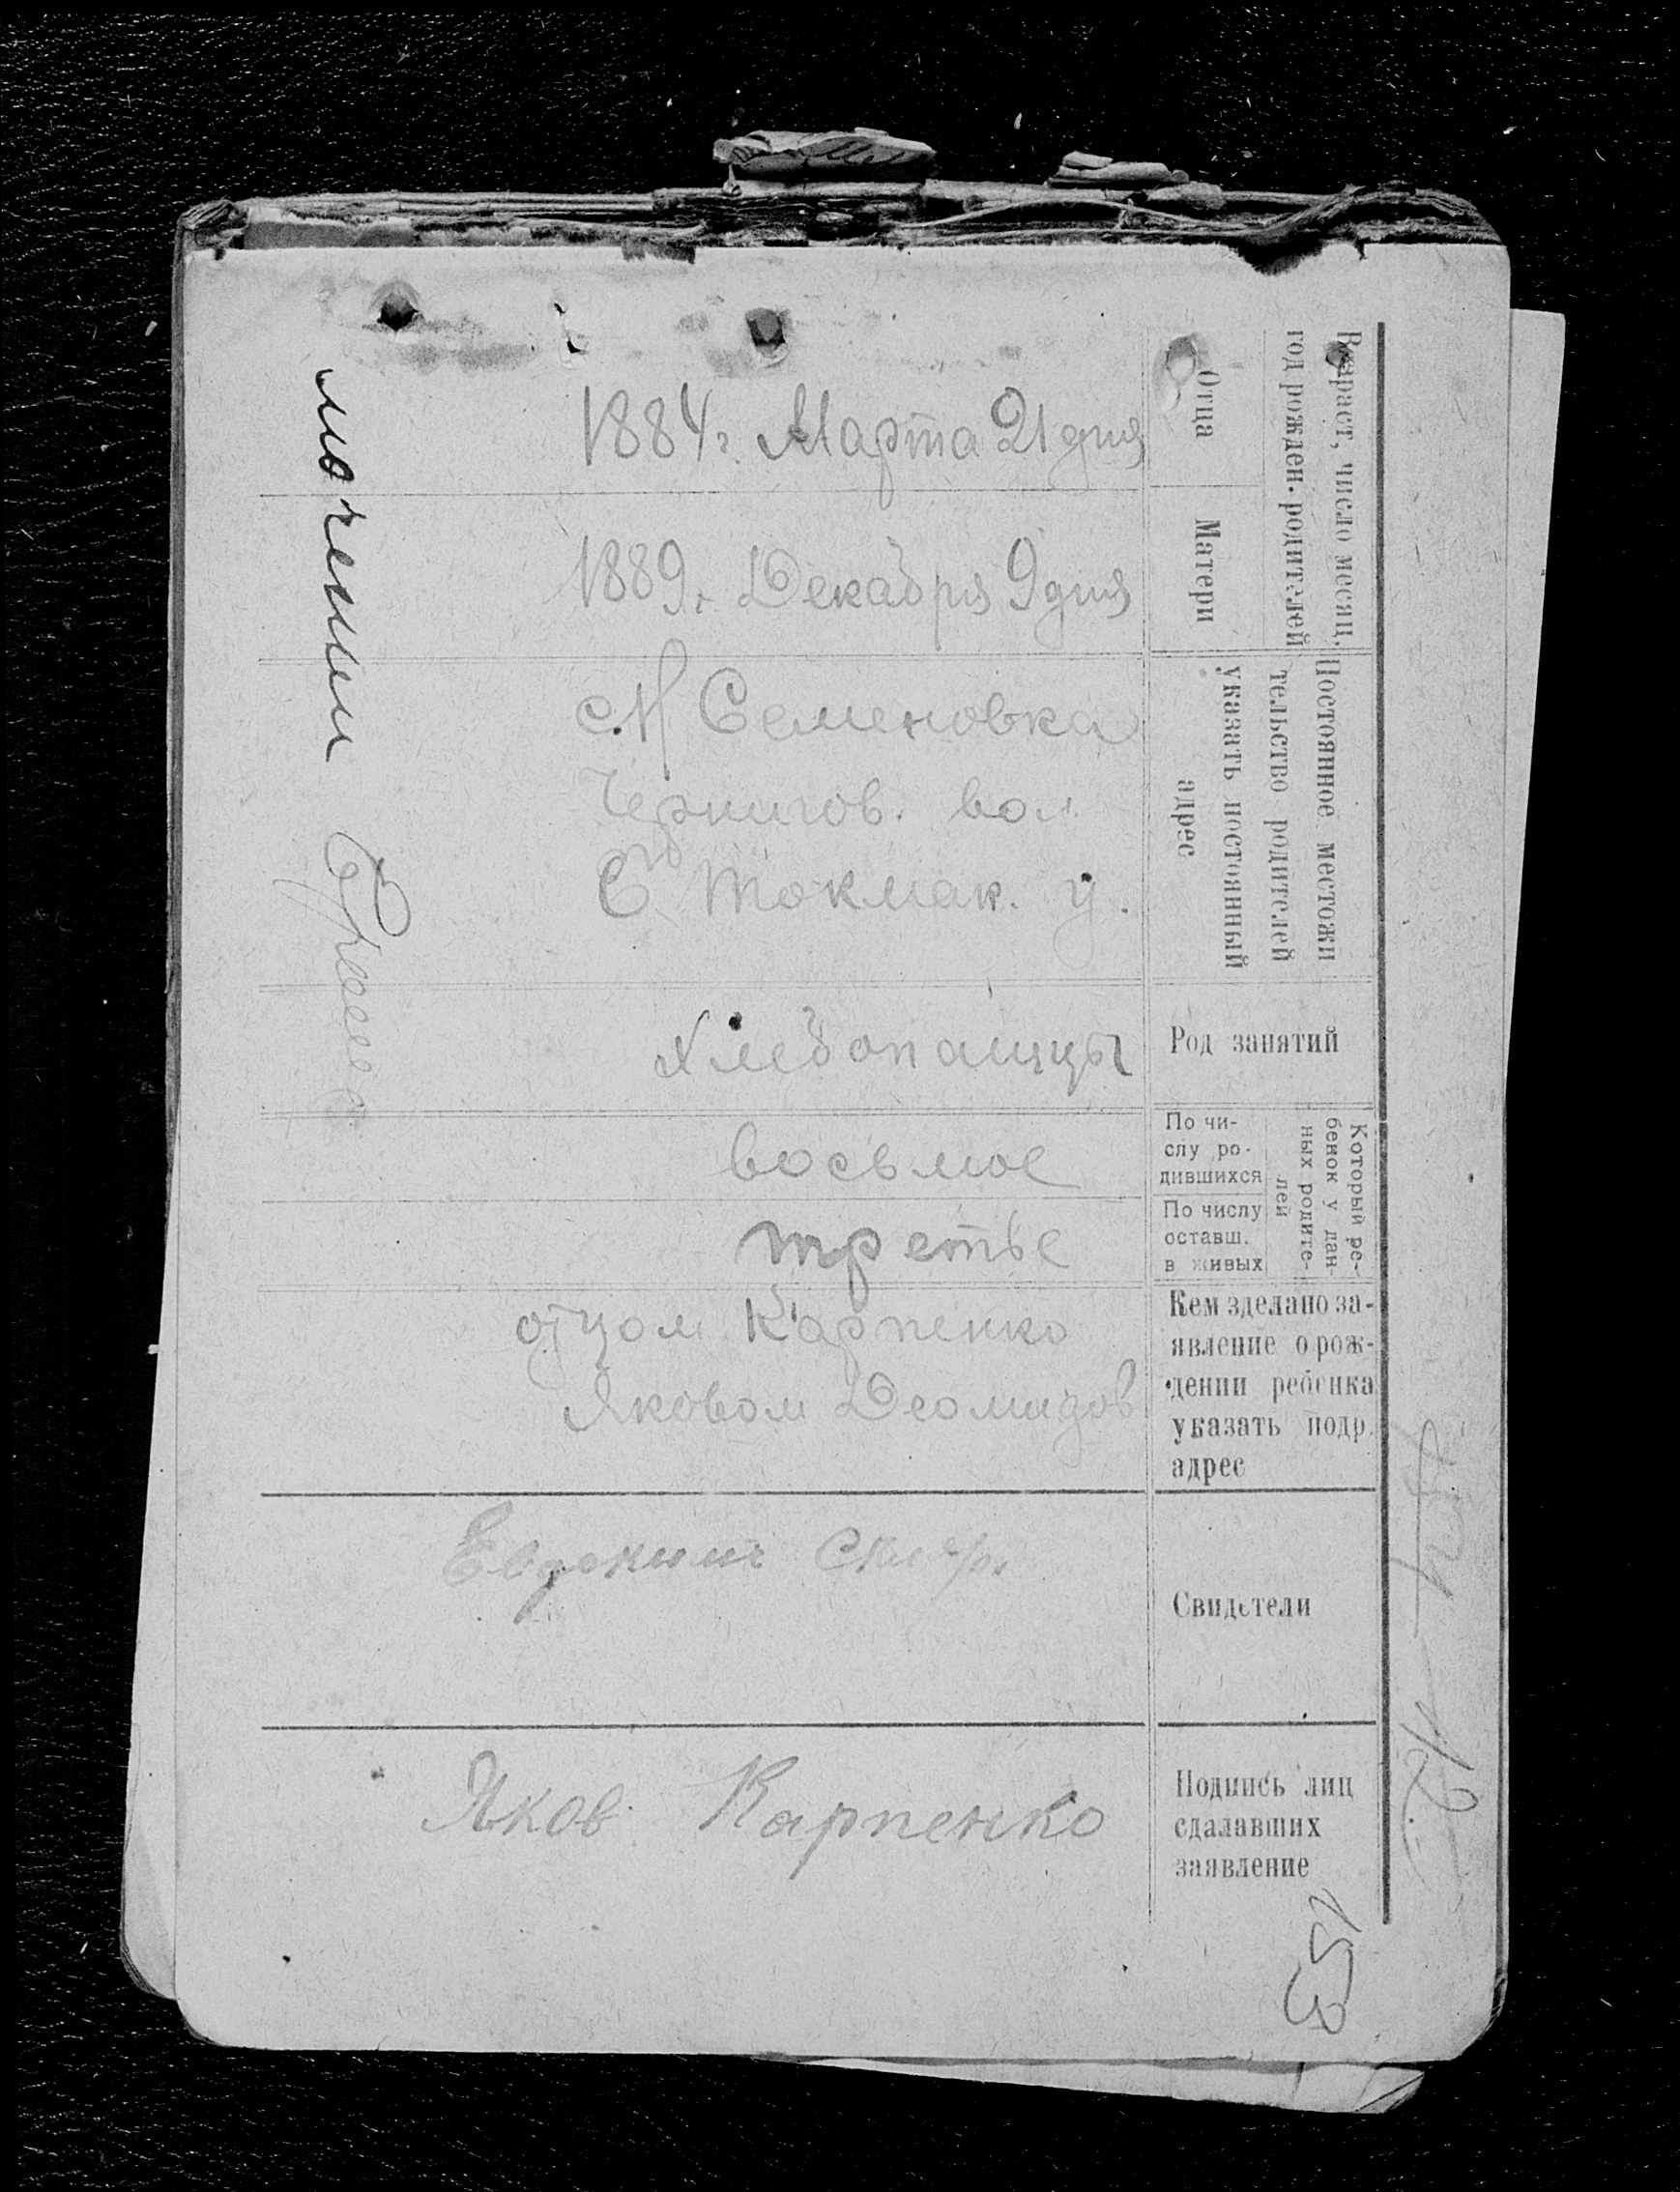 Возраст, число месяц,
год рожден. родителей
Отца
1884 г. Марта 21 дня
Матери
1889 г. Декабря 9 дня
Постоянное местожи
тельство родителей
указать постоянный
адрес
с. Н Семеновка
Чернигов. вол
Б Токмак. у.
Род занятий
Хлебопашцы
Который ре-
бенок у дан-
ных родите-
лей
По чи-
слу ро-
дившихся
восьмое
По числу
оставш.
в живых
третье
Кем зделано за-
явление о рож-
дении ребенка
указать подр.
адрес
отцом Карпенко
Яковом Деомидов
Свидетели
Подпись лиц
сдалавших
заявление
Яков Карпенко
12
153